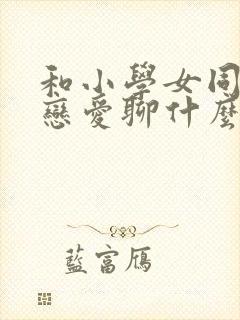 和小學女同
戀愛聊什麼
藍富鴈